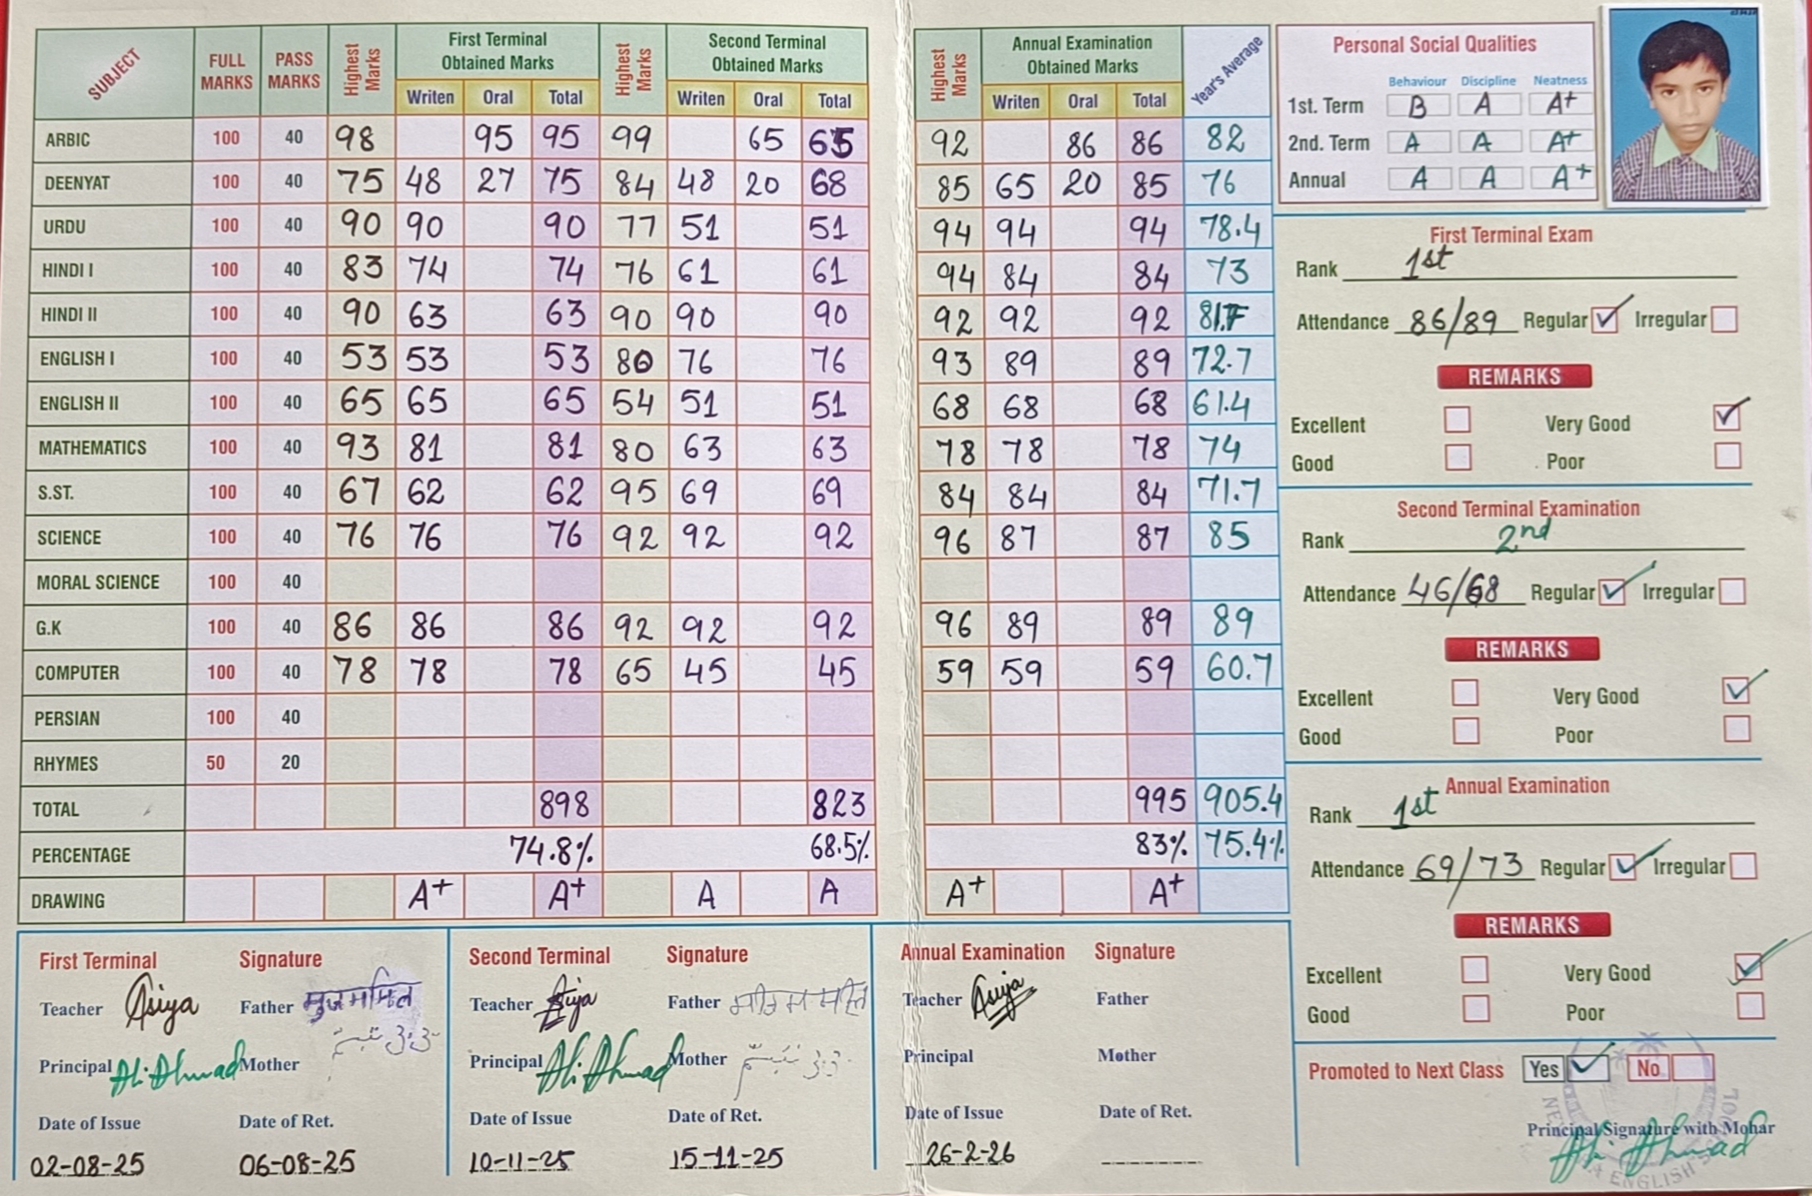 SUBJECT FULL MARKS PASS MARKS Highest Marks First Terminal Obtained Marks Highest Marks Second Terminal Obtained Marks Highest Marks Annual Examination Obtained Marks Year's Average
Writen Oral Total Writen Oral Total Writen Oral Total
ARBIC 100 40 98 95 95 99 65 65 92 86 86 82
DEENYAT 100 40 75 48 27 75 84 48 20 68 85 65 20 85 76
URDU 100 40 90 90 90 77 51 51 94 94 94 78.4
HINDI I 100 40 83 74 74 76 61 61 94 84 84 73
HINDI II 100 40 90 63 63 90 90 90 92 92 92 81.7
ENGLISH I 100 40 53 53 53 80 76 76 93 89 89 72.7
ENGLISH II 100 40 65 65 65 54 51 51 68 68 68 61.4
MATHEMATICS 100 40 93 81 81 80 63 63 78 78 78 74
S.ST. 100 40 67 62 62 95 69 69 84 84 84 71.7
SCIENCE 100 40 76 76 76 92 92 92 96 87 87 85
MORAL SCIENCE 100 40
G.K 100 40 86 86 86 92 92 92 96 89 89 89
COMPUTER 100 40 78 78 78 65 45 45 59 59 59 60.7
PERSIAN 100 40
RHYMES 50 20
TOTAL 898 823 995 905.4
PERCENTAGE 74.8% 68.5% 83% 75.4%
DRAWING A+ A+ A A A+ A+
Personal Social Qualities
Behaviour Discipline Neatness
1st. Term B A A+
2nd. Term A A A+
Annual A A A+
First Terminal Exam
Rank 1st
Attendance 86/89 Regular Irregular
REMARKS
Excellent Very Good
Good Poor
Second Terminal Examination
Rank 2nd
Attendance 46/68 Regular Irregular
REMARKS
Excellent Very Good
Good Poor
Annual Examination
Rank 1st
Attendance 69/73 Regular Irregular
REMARKS
Excellent Very Good
Good Poor
Promoted to Next Class Yes No
Principal Signature with Mohar
Ali Ahmad
First Terminal Signature
Teacher Asiya Father
Principal Ali Ahmad Mother
Date of Issue Date of Ret.
02-08-25 06-08-25
Second Terminal Signature
Teacher Asiya Father
Principal Ali Ahmad Mother
Date of Issue Date of Ret.
10-11-25 15-11-25
Annual Examination Signature
Teacher Asiya Father
Principal Mother
Date of Issue Date of Ret.
26-2-26